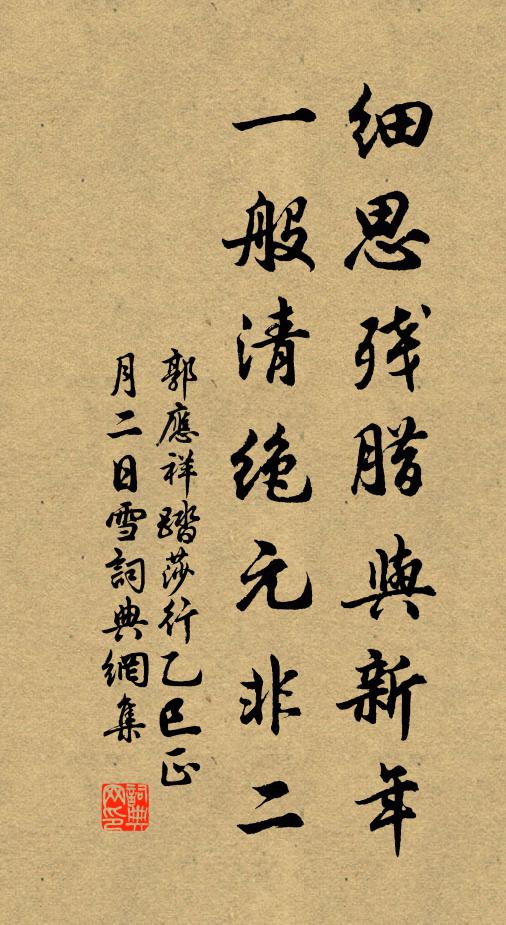 细思残腊与新年
一般清绝元非二
郭應祥踏莎行乙巳正
月二日雪詞典網集
詞典网印